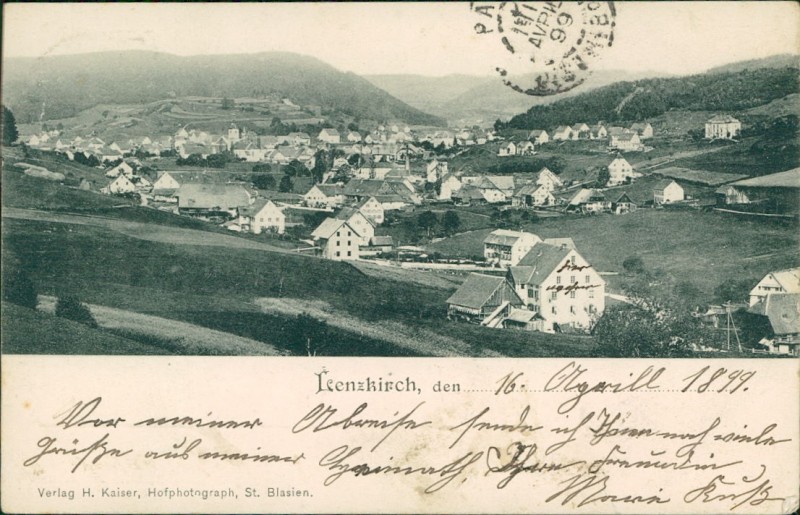 PA
AVRIL
99
hier
Lenzkirch, den 16. Aprill 1899.
Vor meiner Abreise sende ich Ihnen noch viele
Grüße aus meiner Heimath, Ihre Freundin
Marie Kuß
Verlag H. Kaiser, Hofphotograph, St. Blasien.